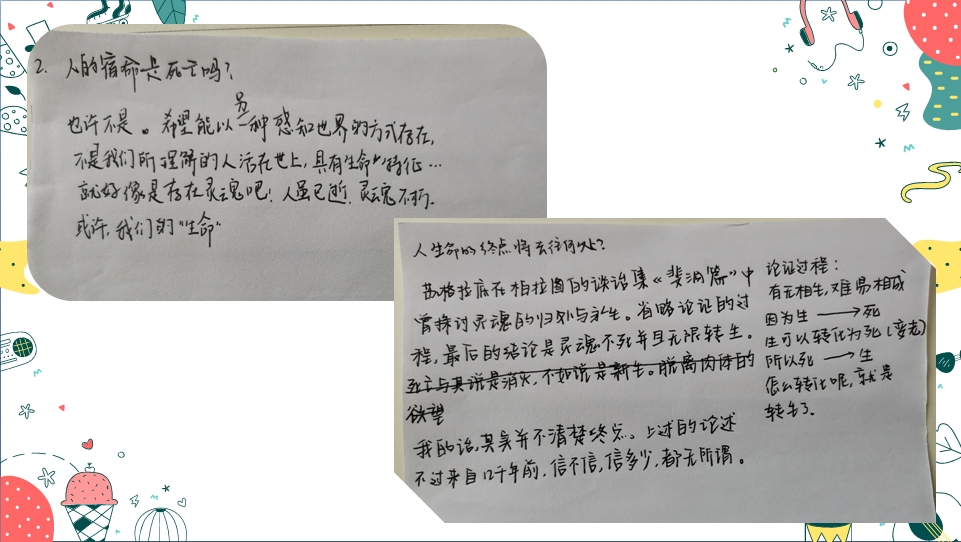 2. 人的宿命是死亡吗？
也许不是。希望能以另一种感知世界的方式存在，
不是我们所理解的人活在世上，具有生命的特征…
就好像是存在灵魂吧！人虽已逝，灵魂不朽。
或许，我们的“生命”
人生命的终点将去往何处？
苏格拉底在柏拉图的谈话集《斐洞篇》中
曾探讨灵魂的归处与永生。省略论证的过
程，最后的结论是灵魂不死并且无限转生。
死亡与其说是消失，不如说是新生。脱离肉体的
欲望
我的话，其实并不清楚终点。上述的论述
不过来自几千年前，信不信，信多少，都无所谓。
论证过程：
有无相生，难易相成
因为生 → 死
生可以转化为死（变老）
所以死 → 生
怎么转化呢，就是
转生了。